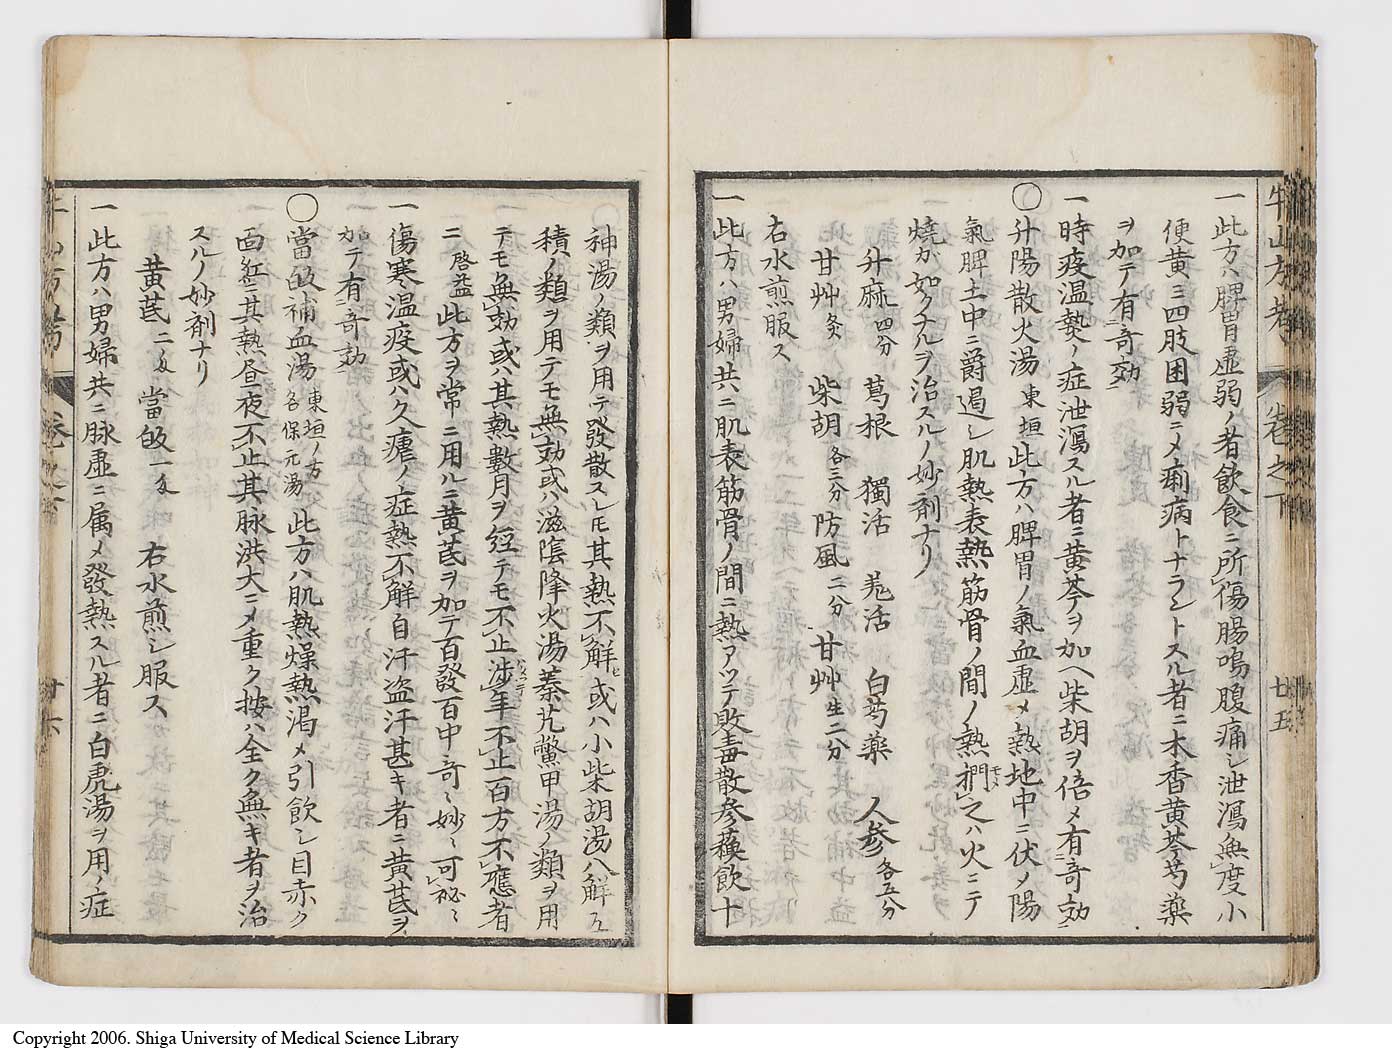 一此方ハ脾胃虚弱ノ者飲食ニ所傷腸鳴腹痛シ泄瀉無度小
便黄ニ四肢困弱ニメ痢病トナラントスル者ニ木香黄芩芍薬
ヲ加テ有奇効
一時疫温𤍠ノ症泄瀉スル者ニ黄芩ヲ加ヘ柴胡ヲ倍メ有奇効
〇升陽散火湯 東垣 此方ハ脾胃ノ氣血虚メ熱地中ニ伏ノ陽
氣脾土中ニ欝遏シ肌熱表熱筋骨ノ間ノ熱捫之ハ火ニテ
モメ
燒カ如クナルヲ治スルノ妙剤ナリ
升麻 四分 葛根 獨活 羗活 白芍薬 人参 各五分
甘艸 灸 柴胡 各三分 防風 二分 甘艸 生二分
右水煎服ス
一此方ハ男婦共ニ肌表筋骨ノ間ニ熱アツテ敗毒散参蘓飲十
牛山方考 巻之下 廿五
神湯ノ類ヲ用テ發散スレモ其熱不解或ハ小柴胡湯八解
積ノ類ヲ用テモ無効或ハ滋陰降火湯秦艽鱉甲湯ノ類ヲ用
テモ無効或ハ其熱數月ヲ經テモ不止渉年不止百方不應者
ニ 啓益 此方ヲ常ニ用ルニ黄芪ヲ加テ百發百中奇々妙々可秘々
一傷寒温疫或ハ久瘧ノ症熱不解自汗盗汗甚キ者ニ黄芪ヲ
加テ有奇効
〇當皈補血湯 東垣ノ方 名保元湯 此方ハ肌熱燥熱渇メ引飲シ目赤ク
面紅ニ其熱昼夜不止其脉洪大ニメ重ク按ハ全ク無キ者ヲ治
スルノ妙剤ナリ
黄芪 二匁 當皈 一匁 右水煎シ服ス
一此方ハ男婦共ニ脉虚ニ属メ發熱スル者ニ白虎湯ヲ用ノ症